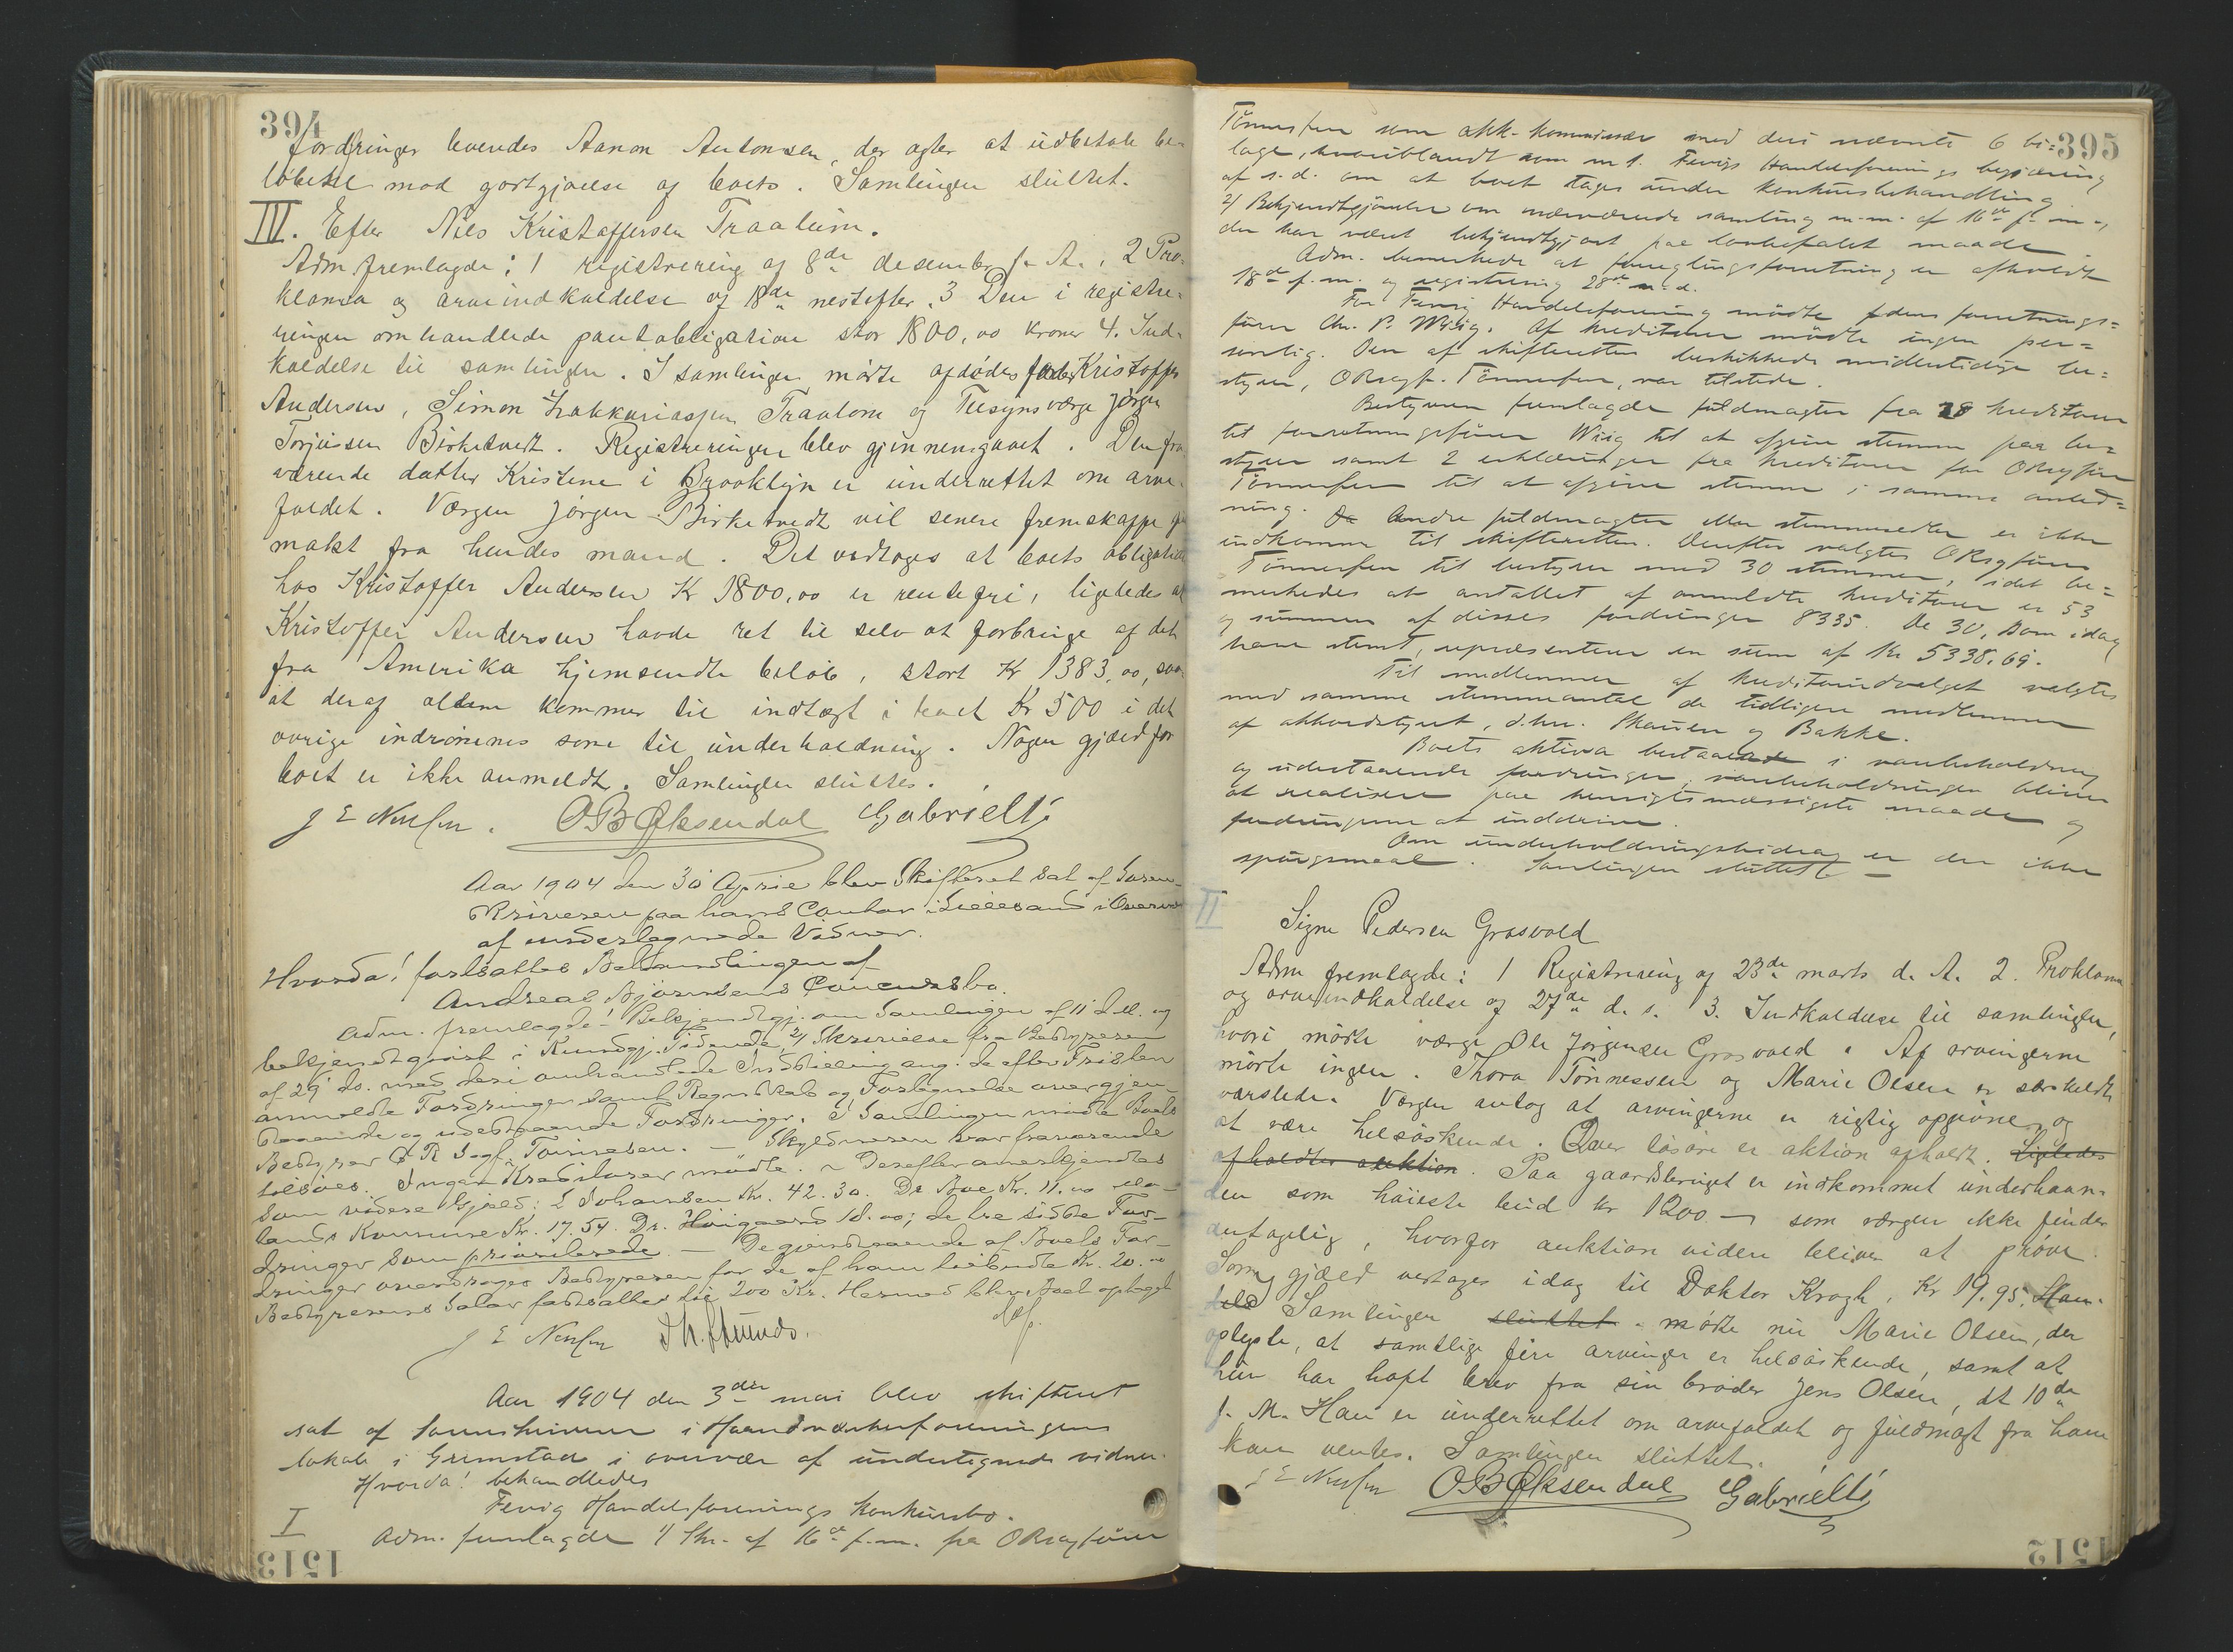 394
fordringer levendes Aanon Antonsen, der agter at udbetale be-
löbene mod godtgjørelse af boets. Samlingen sluttet.
III. Efter Nils Kristoffersen Traalum.
Adm fremlagde: 1 registrering af 8de desember f. A., 2 Pro-
klama og arveindkaldelse af 18de nestefter, 3 Den i registre-
ringen omhandlede pantobligation stor 1800,00 kroner 4. Ind-
kaldelse til samlingen. I samlingen mødte afdødes fader Kristoffer
Andersen, Simon Zakkariassen Traalum og Tilsynsværge Jørgen
Torjusen Birketvedt. Registreringen blev gjennemgaaet. Den fra-
værende datter Kristine i Brooklyn er underrettet om arve-
faldet. Værgen Jørgen Birketvedt vil senere fremskaffe ful
makt fra hendes mand. Det vedtoges at boets obligation
hos Kristoffer Andersen Kr 1800,00 er rentefri, ligeledes at
Kristoffer Andersen havde ret til selv at forbruge af det
fra Amerika hjemsendte beløb, stort Kr 1383,00, saa
at deraf alene kommer til indtægt i boet Kr 500 i det
øvrige indrømmes som til underholdning. Nogen gjæld for
boet er ikke anmeldt. Samlingen sluttes.
J E Nilsen. O B Øksendal Gabrielli
Aar 1904 den 30 April blev Skifteret sat af Soren-
skriveren paa hans Contor i Lillesand i Overvær
af undertegnede Vidner.
Hvorda! fortsattes Behandlingen af
Andreas Bjørnsens Concursbo.
Adm. fremlagde! Bekjendtgj. om Samlingen af 11 ds. og
bekjendtgjort i Kundgj. Tidende, 2) Skrivelse fra Bestyreren
af 29 ds. med deri omhandlede Indstilling ang. de efter Fristen
anmeldte Fordringer samt Regnskab og Fortegnelse over gjen-
staaende og udestaaende Fordringer. I Samlingen mødte Boets
Bestyrer O R Sagf. Tønnesen. – Skyldneren var fraværende
tilsides. Ingen Kreditorer mødte. – Derefter anerkjendtes
som videre Gjæld: E Johansen Kr. 42.30. Dr Boe Kr. 11.00
lands Kommune Kr. 17.54. Dr. Høigaard 18.00; de tre sidste For-
dringer som priviligerede. – De gjenstaaende af Boets For-
dringer overdrages Bestyreren for de af ham tilbudte Kr. 20.00
Bestyrerens Salær fastsattes til 200 Kr. Hermed blev Boet optaget
J E Nilsen
Aar 1904 den 3die mai blev skifteret
sat af sorenskriveren i Haandværkerforeningens
lokale i Grimstad i overvær af undertegnede vidner.
Hvorda! behandledes
I Fevig Handelsforenings konkursbo.
Adm. fremlagde 1/ Skr. af 16de f.m. fra ORsagfører
1513
395
Tønnesen som akk-kommissær med deri nævnte 6 bi=
lage, hvoriblandt som nr 1. Fevigs Handelsforenings begjæring
af s.d. om at boet tages under konkursbehandling
2/ Bekjendtgjørelse om nærværende samling m.m. af 16de f.m.,
der har været bekjendtgjort paa lovbefalet maade
Adm. bemerkede at forseglingsforretning er afholdt
18de f.m. og registrering 28de n.d.
For Fevig Handelsforening mødte dens forretnings=
fører Chr. P. Wiig. Af kreditorer mødte ingen per=
sonlig. Den af skifteretten beskikkede midlertidige be=
styrer, ORsagf. Tønnesen, var tilstede.
Bestyreren fremlagde fuldmagter fra 28 kreditorer
til forretningsfører Wiig til at afgive stemme paa be=
styrer samt 2 erklæringer fra kreditorer for ORsagfører
Tønnesen til at afgive stemme i samme anled=
ning. Andre fuldmagter eller stemmesedler er ikke
indkomne til skifteretten. Derefter valgtes ORsagfører
Tønnesen til bestyrer med 30 stemmer, idet be=
merkedes at antallet af anmeldte kreditorer er 53
og summen af disses fordringer 8335. De 30, som idag
have stemt, repræsenterer en sum af Kr 5338.69.
Til medlemmer af kreditorudvalget valgtes
med samme stemmeantal de tidligere medlemmer
af akkordstyret, d.hrr. Skauen og Bakke.
Boets aktiva bestaar i varebeholdning
og udestaaende fordringer, varebeholdningen bliver
at realisere paa hensigtsmæssigste maade og
fordringerne at inddrive.
Om underholdningsbidrag er der ikke
spørgsmaal. Samlingen sluttet –
II Signe Pedersen Grosvold
Adm fremlagde: 1 Registrering af 23de marts d. A. 2. Proklama
og arveindkaldelse af 27de d. s. 3. Indkaldelse til samlingen,
hvori mødte værge Ole Jørgensen Grosvold. Af arvingerne
mødte ingen. Thora Tønnessen og Marie Olsen er særskildt
varslede. Værgen antog at arvingerne er rigtig opgivne og
at være helsøskende. Over løsøre er aktion afholdt. Ligeledes
afholdtes auktion. Paa gaardsbruget er indkommet underhaan-
den som høieste bud kr 1200 — som værgen ikke finder
antagelig, hvorfor auktion videre bliver at prøve.
Som gjæld vedtages idag til Doktor Krogh, Kr 19.95. Han-
dels Samlingen sluttet. mødte nu Marie Olsen, der
oplyste, at samtlige fire arvinger er helsøskende, samt at
hun har havt brev fra sin broder Jens Olsen, dt 10de
f. M. Han er underrettet om arvefaldet og fuldmagt fra ham
kan ventes. Samlingen sluttet.
J E Nilsen O B Øksendal Gabrielli
1512